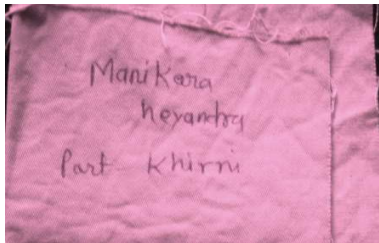 Manikara
hexandra
Part Khirni